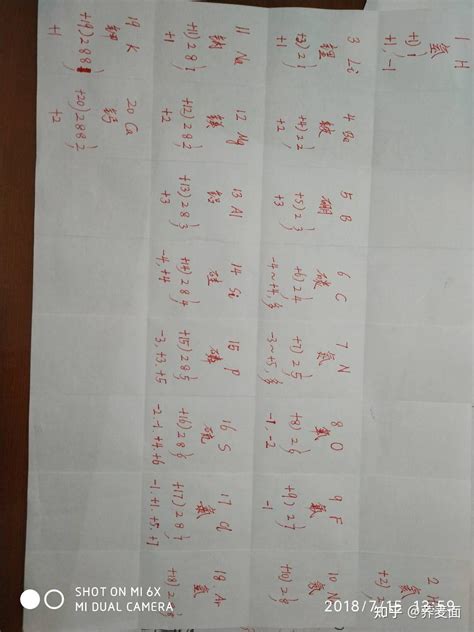 1 H
氢
+1) 1
+1, -1
2 H
氦
+2) 2
3 Li
锂
+3) 2 1
+1
4 Be
铍
+4) 2 2
+2
5 B
硼
+5) 2 3
+3
6 C
碳
+6) 2 4
-4~+4,
7 N
氮
+7) 2 5
-3~+5,
8 O
氧
+8) 2 6
-1, -2
9 F
氟
+9) 2 7
-1
10 N
氖
+10) 2 8
11 Na
钠
+11) 2 8 1
+1
12 Mg
镁
+12) 2 8 2
+2
13 Al
铝
+13) 2 8 3
+3
14 Si
硅
+14) 2 8 4
-4, +4
15 P
磷
+15) 2 8 5
-3, +3, +5
16 S
硫
+16) 2 8 6
-2, -1, +4, +6
17 Cl
氯
+17) 2 8 7
-1, +1, +5, +7
18 Ar
氩
+18) 2 8
19 K
钾
+19) 2 8 8 1
+1
20 Ca
钙
+20) 2 8 8 2
+2
SHOT ON MI 6X
MI DUAL CAMERA
知乎 @荞麦面
2018/7/15 13:59